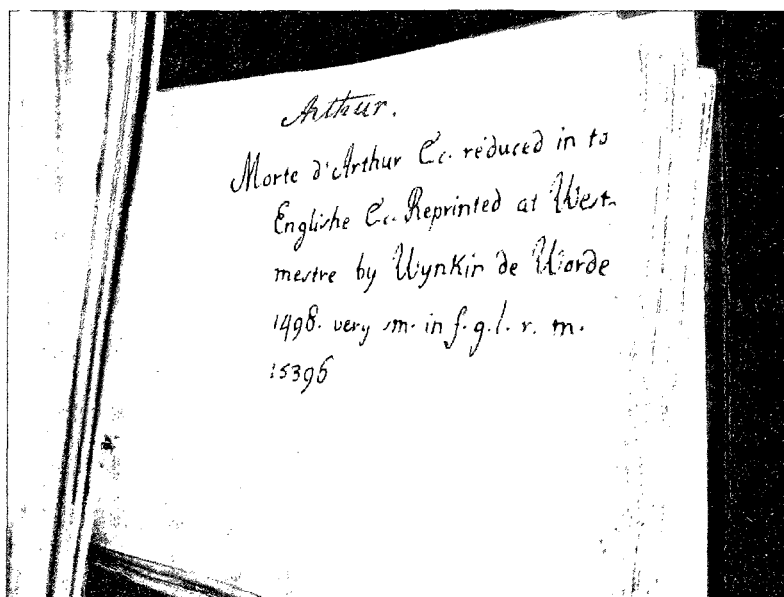 Arthur.
Morte d'Arthur &c. reduced in to
Englishe &c. Reprinted at West-
mestre by Wynkin de Worde
1498. very sm. in f. g. l. r. m.
15395